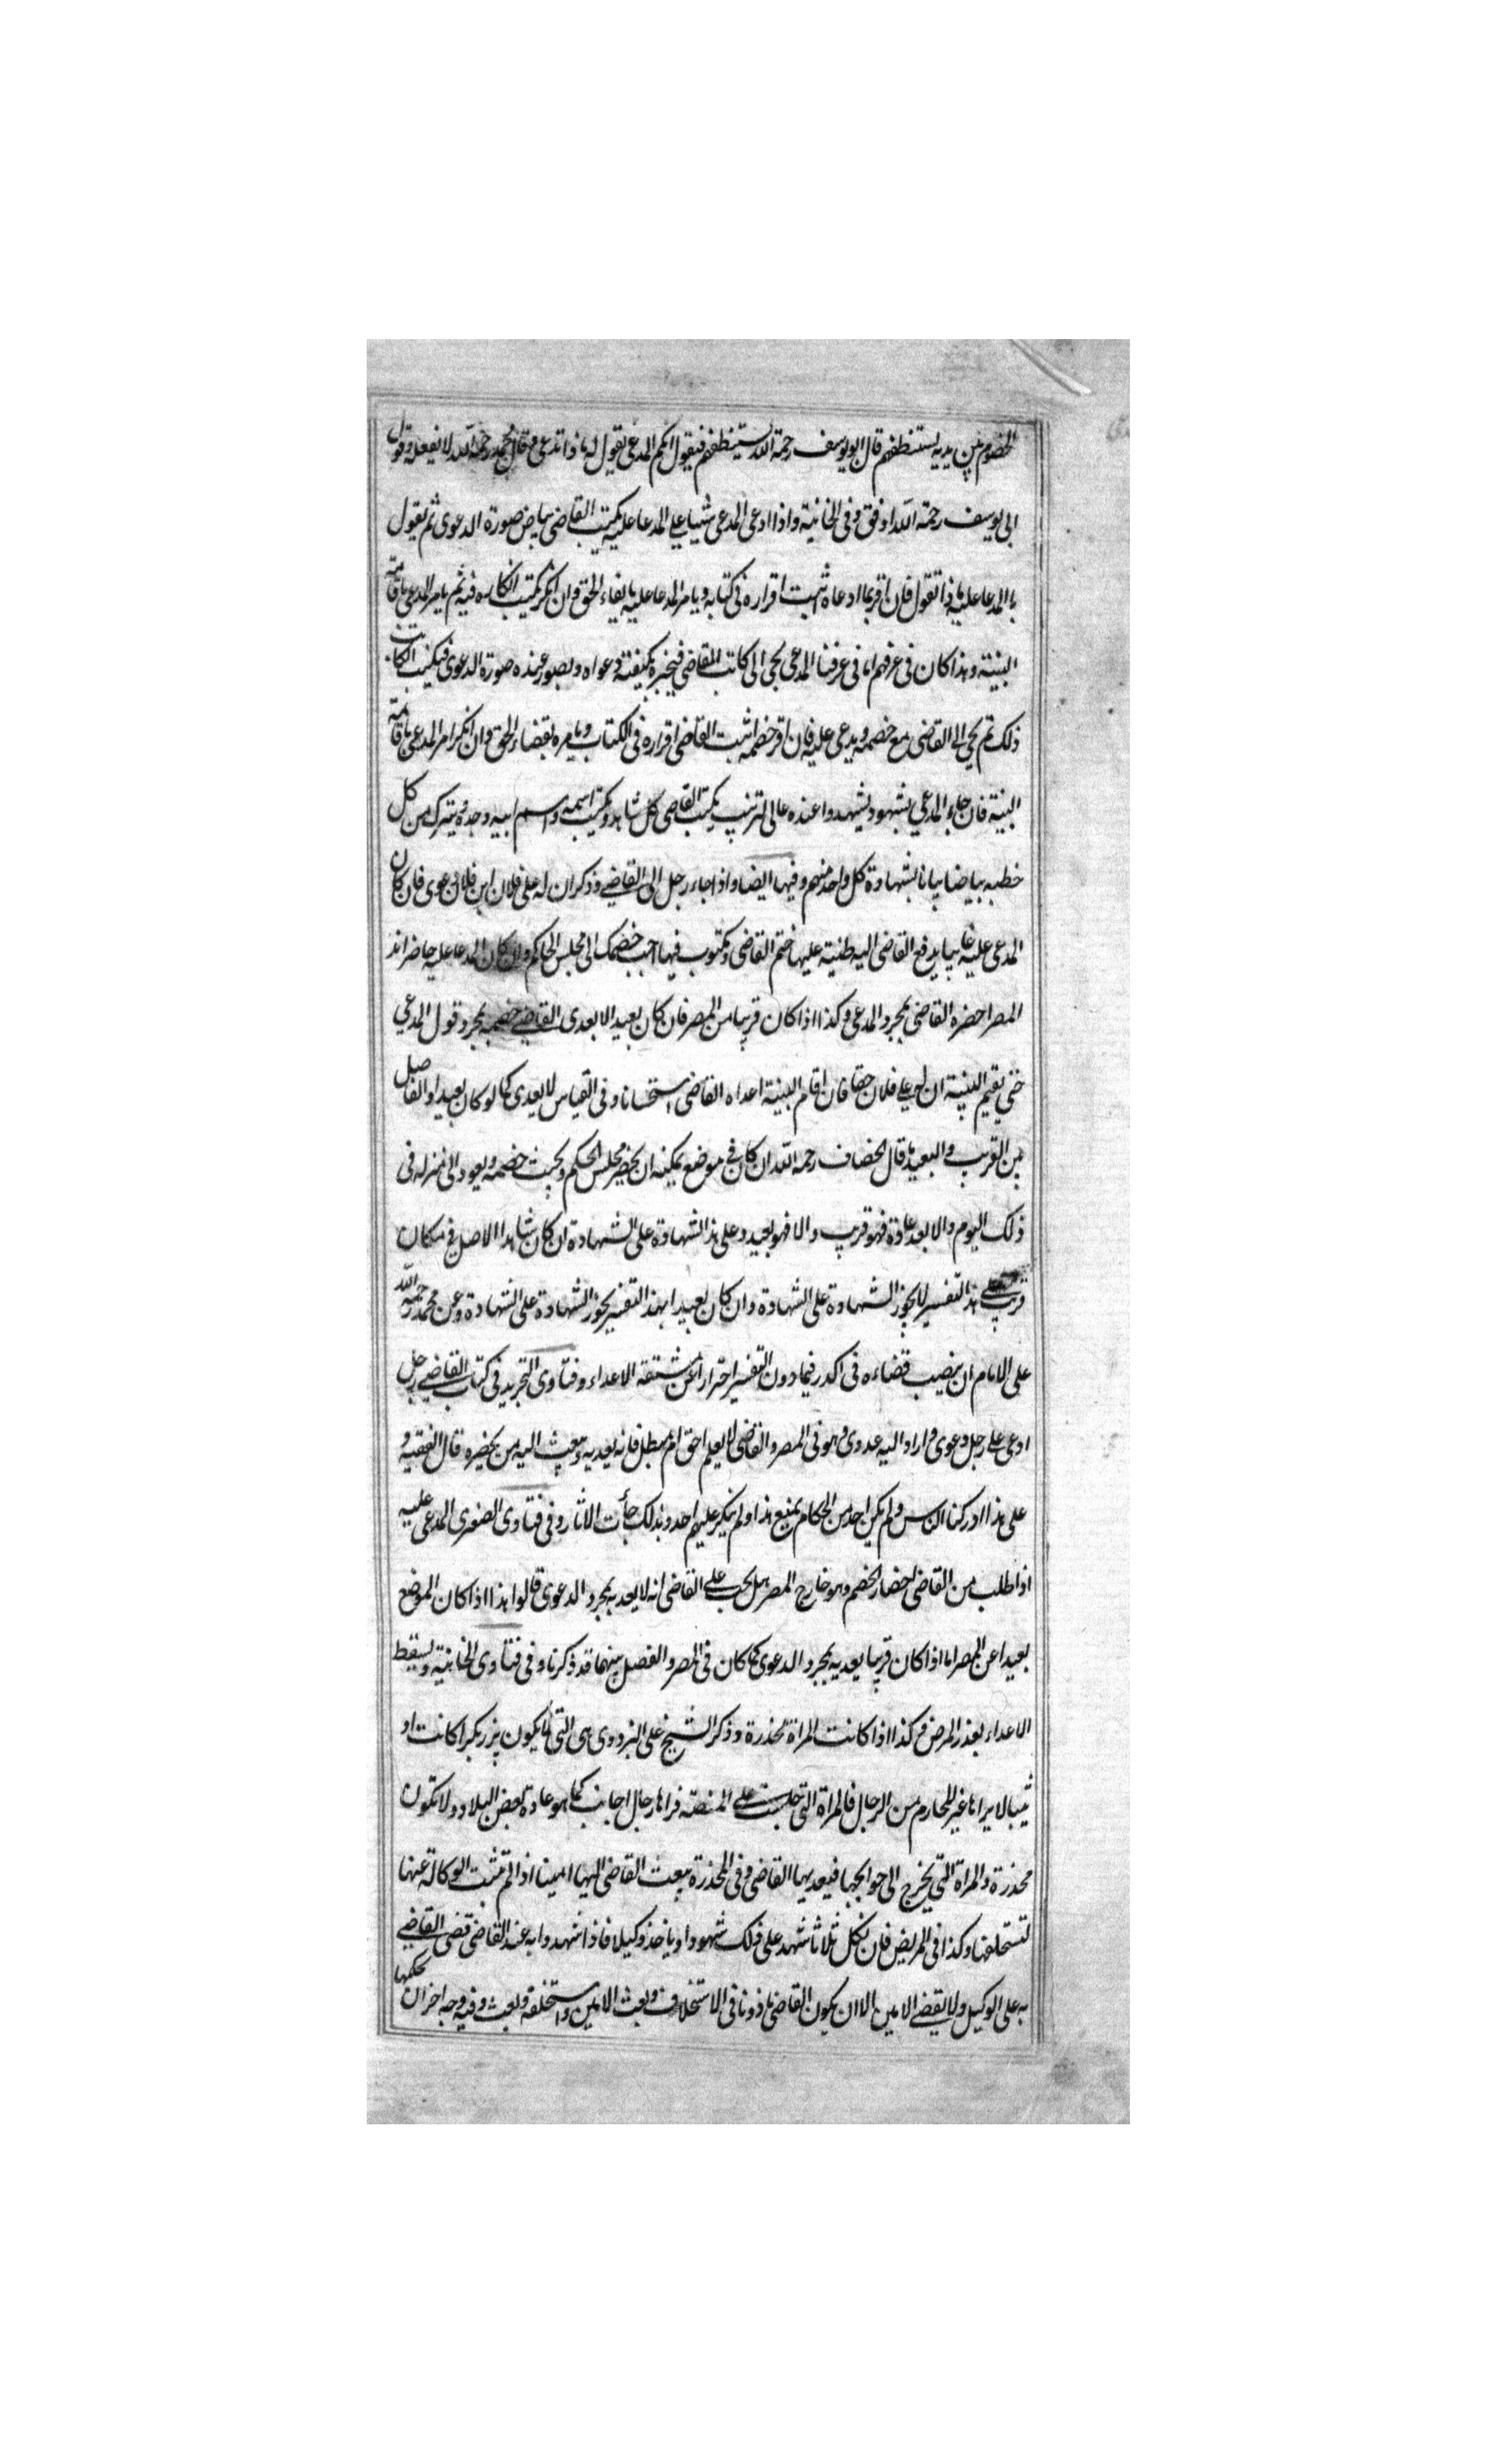 الخصوم بين يديه يستنطقهم قال ابو يوسف رحمة الله يستنطقهم فيقول ايكم المدعى يقول له ماذا تدعى وقال محمد رحمة الله لا يفعله وقول
ابى يوسف رحمة الله اوفق وفى الخانية واذا ادعى المدعى شيئا على المدعا عليه يكتب القاضى بياض صورة الدعوى ثم يقول
يا المدعا عليه ماذا تقول فان اقر بما ادعاه اثبت اقراره فى كتابه ويامر المدعا عليه بايفاء الحق وان انكر يكتب انكاره فيه ثم يامر المدعى باقامة
البينة وهذا كان فى عرفهم اما فى عرفنا المدعى يجى الى كاتب القاضى فيخبره بكيفية دعواه ويصور عنده صورة الدعوى فيكتب الكاتب
ذلك ثم يجى الى القاضى مع خصمه ويدعى عليه فان اقر خصمه اثبت القاضى اقراره فى الكتاب ويامره بقضاء الحق وان انكر امر المدعى باقامة
البينة فان جاء المدعي بشهود يشهدوا عنده عالى الترتيب يكتب القاضى كل شاهد ويكتب اسمه واسم ابيه وجده ويترك من كل
خطبه بياضا بيانا بشهادة كل واحد منهم وفيها ايضا واذا جاء رجل الى القاضے وذكر ان له على فلان ابن فلان دعوى فان كان
المدعى عليه غايبا يدفع القاضى اليه طينة عليها ختم القاضى ومكتوب فيها اجب خصمك الى مجلس الحاكم وان كان المدعا عليه حاضرا فى
المصر احضره القاضى بمجرد المدعى وكذا اذا كان قريبا من المصر فان كان بعيدا لا يعدى القاضے خصمه بمجرد قول المدعي
حتى يقيم البينة ان لى على فلان حقا فان اقام البينة اعداه القاضى استحسانا وفى القياس لا يعدى كما لو كان بعيدا والفاصل
بين القريب والبعيد ما قال الخصاف رحمة الله ان كان فى موضع يمكنه ان يحضر مجلس الحكم ويجيب خصمه ويعود الى منزله فى
ذلك اليوم والا بعد عادة فهو قريب والا فهو بعيد وعلى هذا الشهادة على الشهادة ان كان شاهدا الاصل فى مكان
قريب على هذا التفسير لا يجوز الشهادة على الشهادة وان كان بعيدا بهذا التفسير يجوز الشهادة على الشهادة وعن محمد رحمة الله
على الامام ان ينصب قضاءه فى اكدر فيما دون التفسير احترازا عن مشقة الاعداء وفتاوى التجريد فى كتاب القاضے رجل
ادعى على رجل دعوى واراد اليه عدوى وهو فى المصر والقاضى لا يعلم احق ام مبطل فانه يعديه ويبعث اليه من يحضره قال الفقيه و
على هذا ادركنا الناس ولم يكن احد من الحكام يمنع هذا ولم ينكر عليهم احد وبذلك جأت الاثار وفى فتاوى الصغرى المدعى عليه
اذا طلب من القاضى احضار الخصم وهو خارج المصر هل يجب على القاضى انه لا يعديه بمجرد الدعوى قالوا هذا اذا كان الموضع
بعيدا عن المصر اما اذا كان قريبا يعديه بمجرد الدعوى كما كان فى المصر والفصل بينهما قد ذكرنا وفى فتاوى الخانية ويسقط
الاعداء بعذر المرض وكذا اذا كانت المراة مخدرة وذكر الشيخ على البزدوى هى التى لا يكون برز بكرا كانت او
ثيبا لا يراها غير المحارم من الرجال فالمراة التى جلست على المنصة فراها رجال اجانب كما هو عادة بعض البلاد ولا تكون
مخدرة والمراة التى يخرج الى حوايجها فيعديها القاضى وفى المخدرة يبعث القاضى اليها امينا اذا لم تثبت الوكالة عنها
لتستحلفها وكذا فى المريض فان نكل ثلاثا شهد على ذلك شهود او ياخذ وكيلا فاذا شهدوا به عند القاضى قضى القاضے
به على الوكيل ولا يقضے الامين الا ان يكون القاضى ماذونا فى الاستخلاف وبعث الامين واستخلفه وبعث وفيه وجه اخر ان حكمها